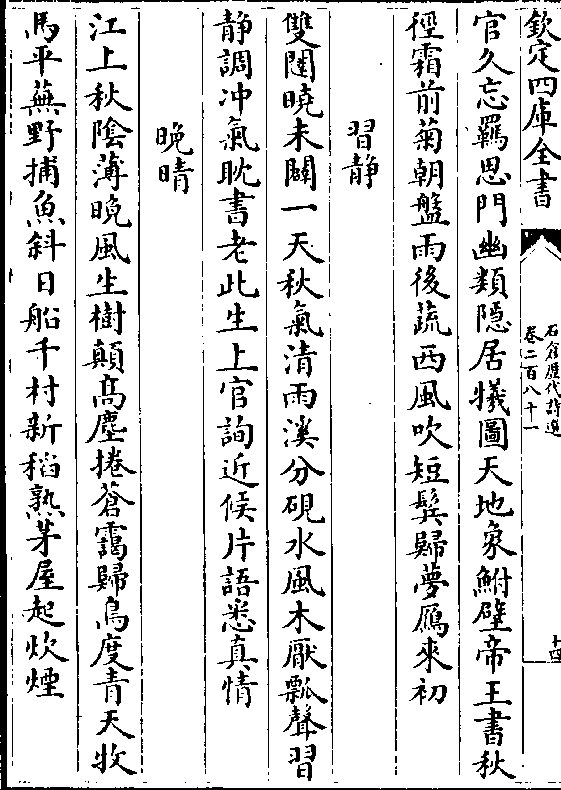 欽定四庫全書
石倉歷代詩選
卷二百八十一
十四
官久忘羈思門幽類隱居犠圖天地象鮒壁帝王書秋
徑霜前菊朝盤雨後蔬西風吹短鬂歸夢鴈來初
習静
雙闗曉未闢一天秋氣清雨溪分硯水風木厭瓢聲習
静調冲氣耽書老此生上官詢近候片語悉真情
晩晴
江上秋隂薄晩風生樹顛髙塵捲蒼靄歸鳥度青天牧
馬平蕪野捕魚斜日船千村新稻熟茅屋起炊煙